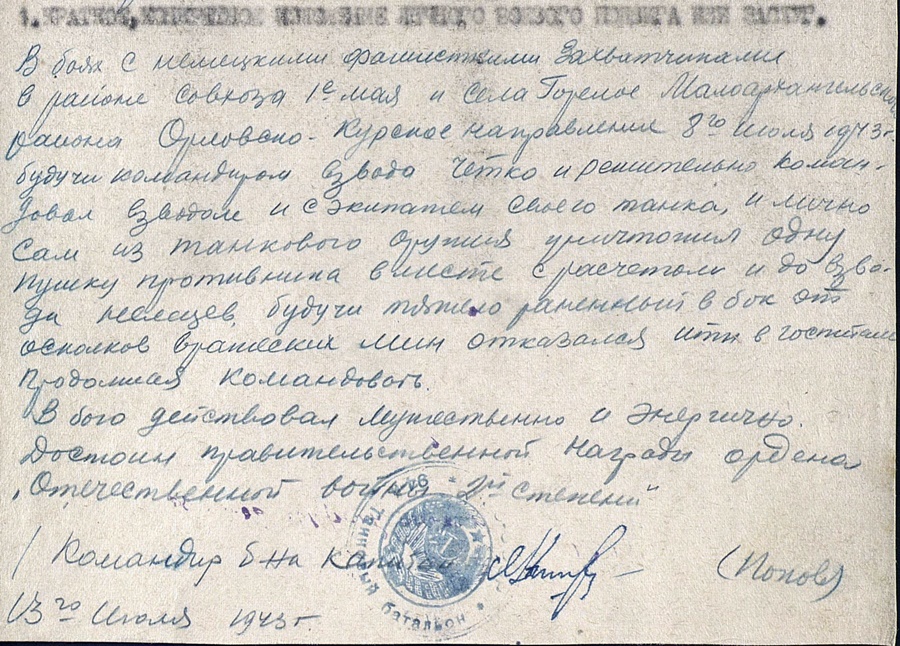 1. КРАТКОЕ, КОНКРЕТНОЕ ИЗЛОЖЕНИЕ ЛИЧНОГО БОЕВОГО ПОДВИГА ИЛИ ЗАСЛУГ.
В боях с немецкими фашисткими захватчиками
в районе совхоза 1е мая и села Горелое Малоархангельско
района Орловско-Курское направления 8го июля 1943г.
будучи командиром взвода чётко и решительно коман-
довал взводом и с экипатем своего танка, и лично
сам из танкового оружия уничтожил одну
пушку противника вместе с расчетом и до взво-
да немцев, будучи тяжело раненный в бок от
осколков вражеских мин отказался итти в госпиталь
продолжая командовать.
В бою действовал мужественно и энергично.
Достоин правительственной награды ордена
„Отечественной войны - 2ой степени"
Командир б-на капитан (Попов)
13го июля 1943г.
танковый батальон